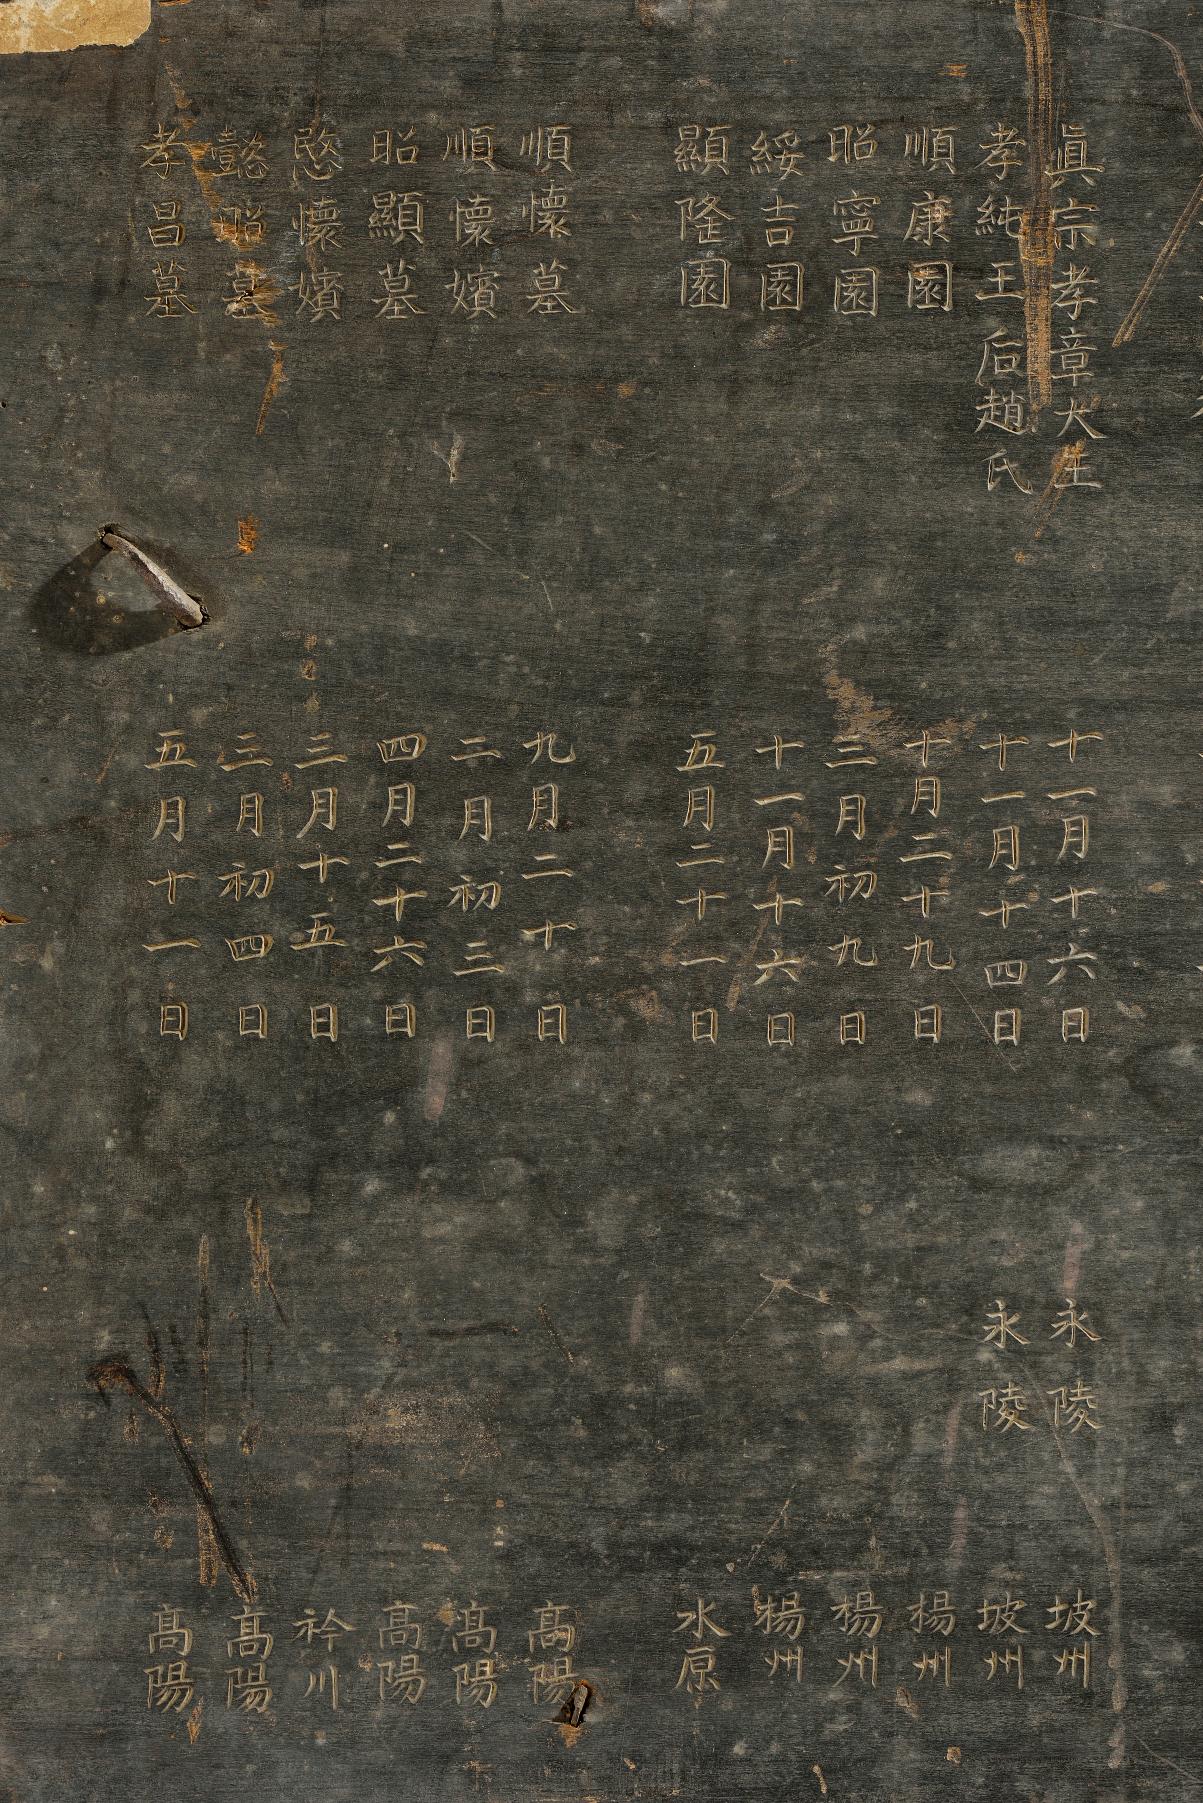 眞宗孝章大王 十一月十六日 永陵 坡州
孝純王后趙氏 十一月十四日 永陵 坡州
順康園 十月二十九日 楊州
昭寧園 三月初九日 楊州
綏吉園 十一月十六日 楊州
顯隆園 五月二十一日 水原
順懷墓 九月二十日 高陽
順懷嬪 二月初三日 高陽
昭顯墓 四月二十六日 高陽
愍懷嬪 三月十五日 衿川
懿昭墓 三月初四日 高陽
孝昌墓 五月十一日 高陽